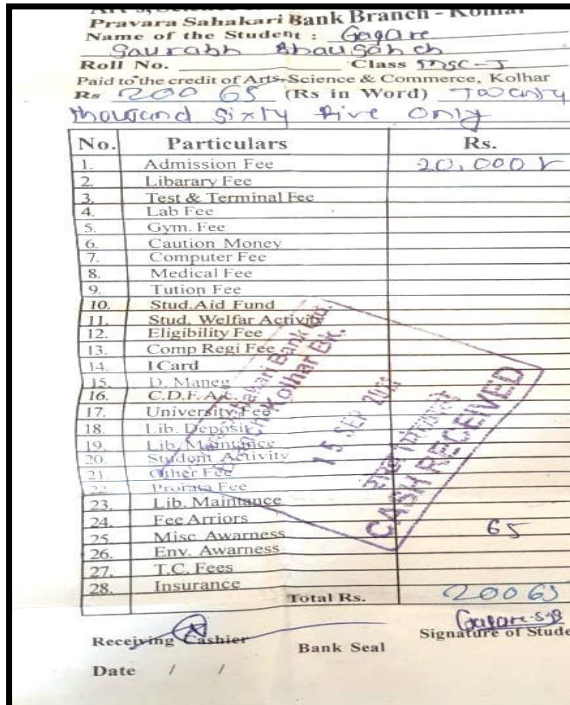 Pravara Sahakari Bank Branch - Kolhar
Name of the Student : Gagare
Saurabh Bhausaheb
Roll No. Class MSC-I
Paid to the credit of Arts, Science & Commerce, Kolhar
Rs 20065 (Rs in Word) Twenty
thousand Sixty Five Only
No. Particulars Rs.
1. Admission Fee 20,000
2. Libarary Fee
3. Test & Terminal Fee
4. Lab Fee
5. Gym. Fee
6. Caution Money
7. Computer Fee
8. Medical Fee
9. Tution Fee
10. Stud.Aid Fund
11. Stud. Welfar Activity
12. Eligibility Fee
13. Comp Regi Fee
14. I Card
15. D. Maneg
16. C.D.F. A/c.
17. University Fee
18. Lib. Deposit
19. Lib. Maintance
20. Student Activity
21. Other Fee
22. Prorata Fee
23. Lib. Maintance
24. Fee Arriors
25. Misc Awarness 65
26. Env. Awarness
27. T.C. Fees
28. Insurance
Total Rs. 20065
15 SEP
CASH RECEIVED
Receiving Cashier Bank Seal Signature of Stude
Date / /